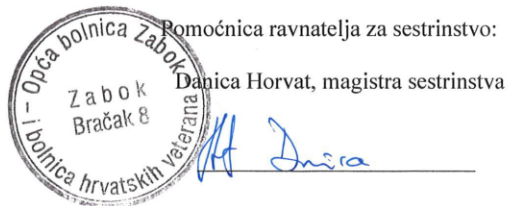 Pomoćnica ravnatelja za sestrinstvo:
Danica Horvat, magistra sestrinstva
Opća bolnica Zabok
i bolnica hrvatskih veterana
Zabok
Bračak 8